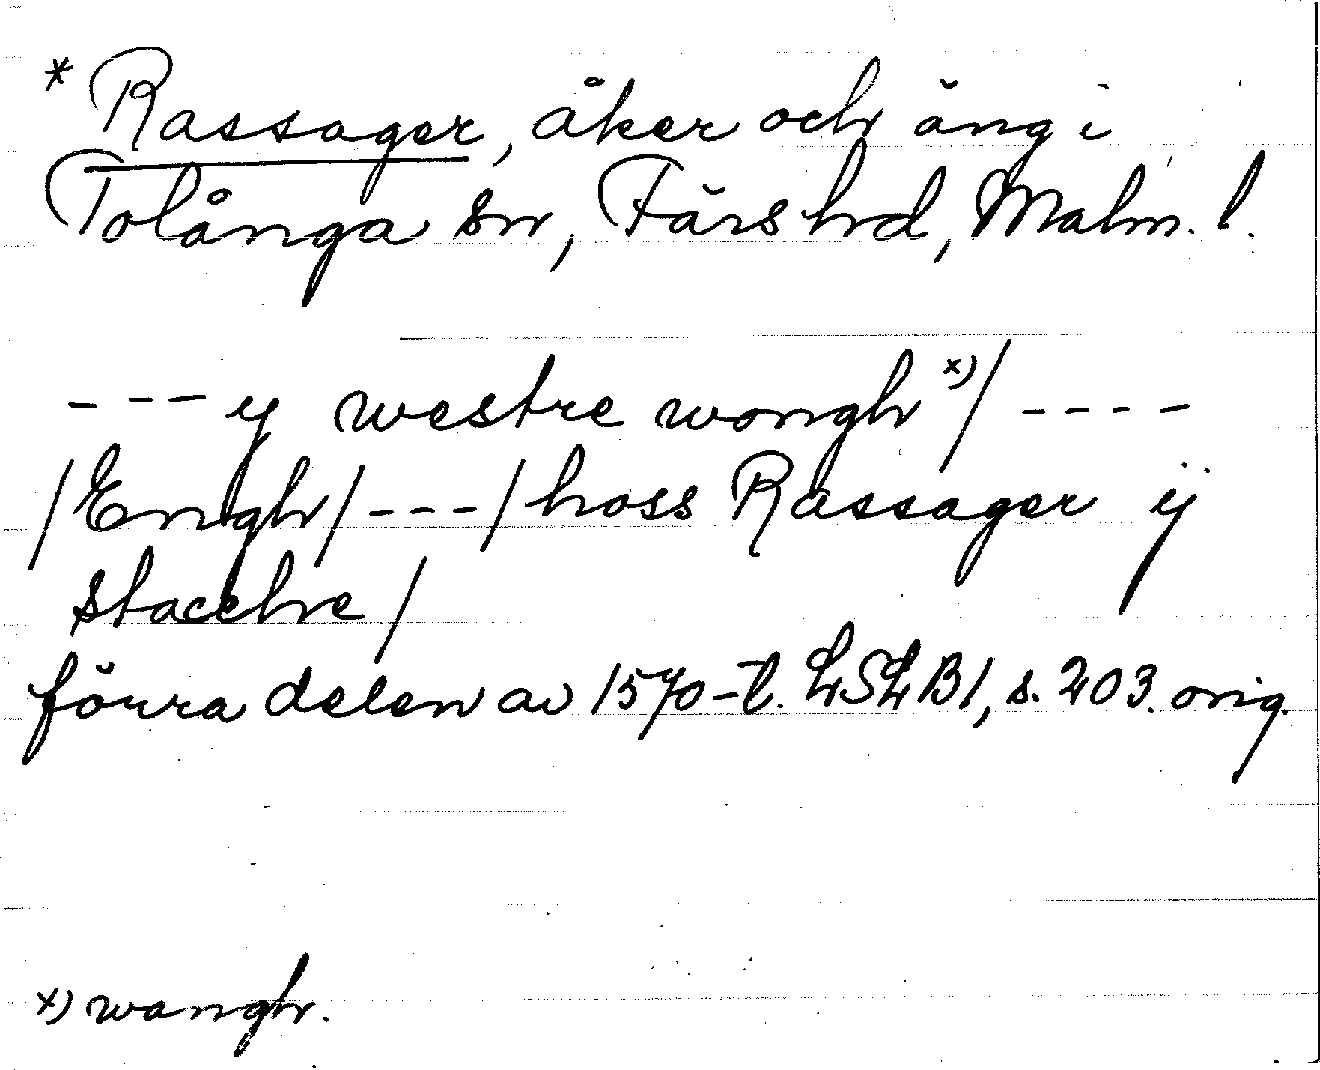 * Rassager, åker och äng i
Tolånga sn, Färs hd, Malm. l.
- - - y westre wongh x)/ - - - -
/Engh/ - - - /hoss Rassager ÿ
stacchre/
förra delen av 1570-t. LSLB1, s. 203. orig.
x) wangh.